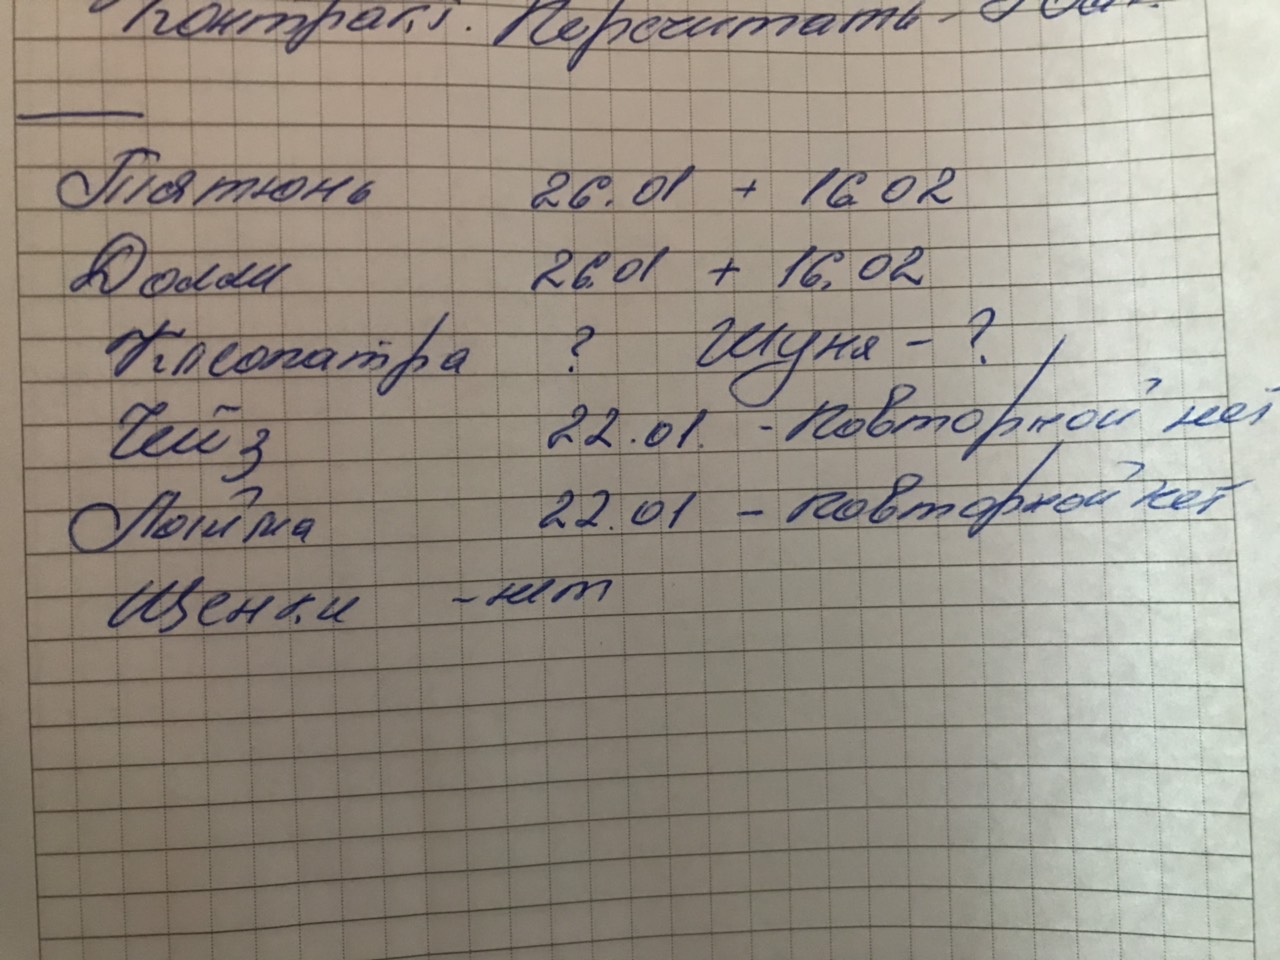 Контракт. Перечитать -
Пятюнь 26.01 + 16.02
Долли 26.01 + 16.02
Клеопатра ? Шуня - ?
Чейз 22.01. - Повторной нет
Лойма 22.01 - Повторной нет
Щенки - нет